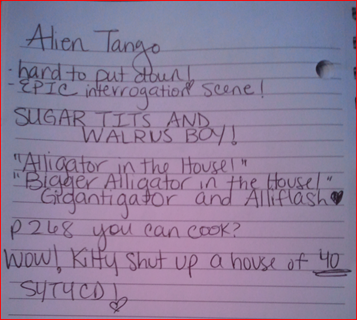 Alien Tango
- hard to put down!
- EPIC interrogation scene!
SUGAR TITS AND
WALRUS BOY!
"Alligator in the House!"
"Bigger Alligator in the House!"
Gigantigator and Alliflash♥
p 268 you can cook?
WOW! Kitty shut up a house of 40
SYTYCD!
♡